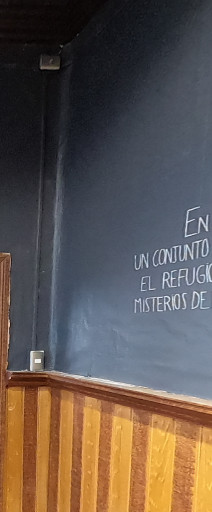 EN
UN CONJUNTO
EL REFUGIO
MISTERIOS DE